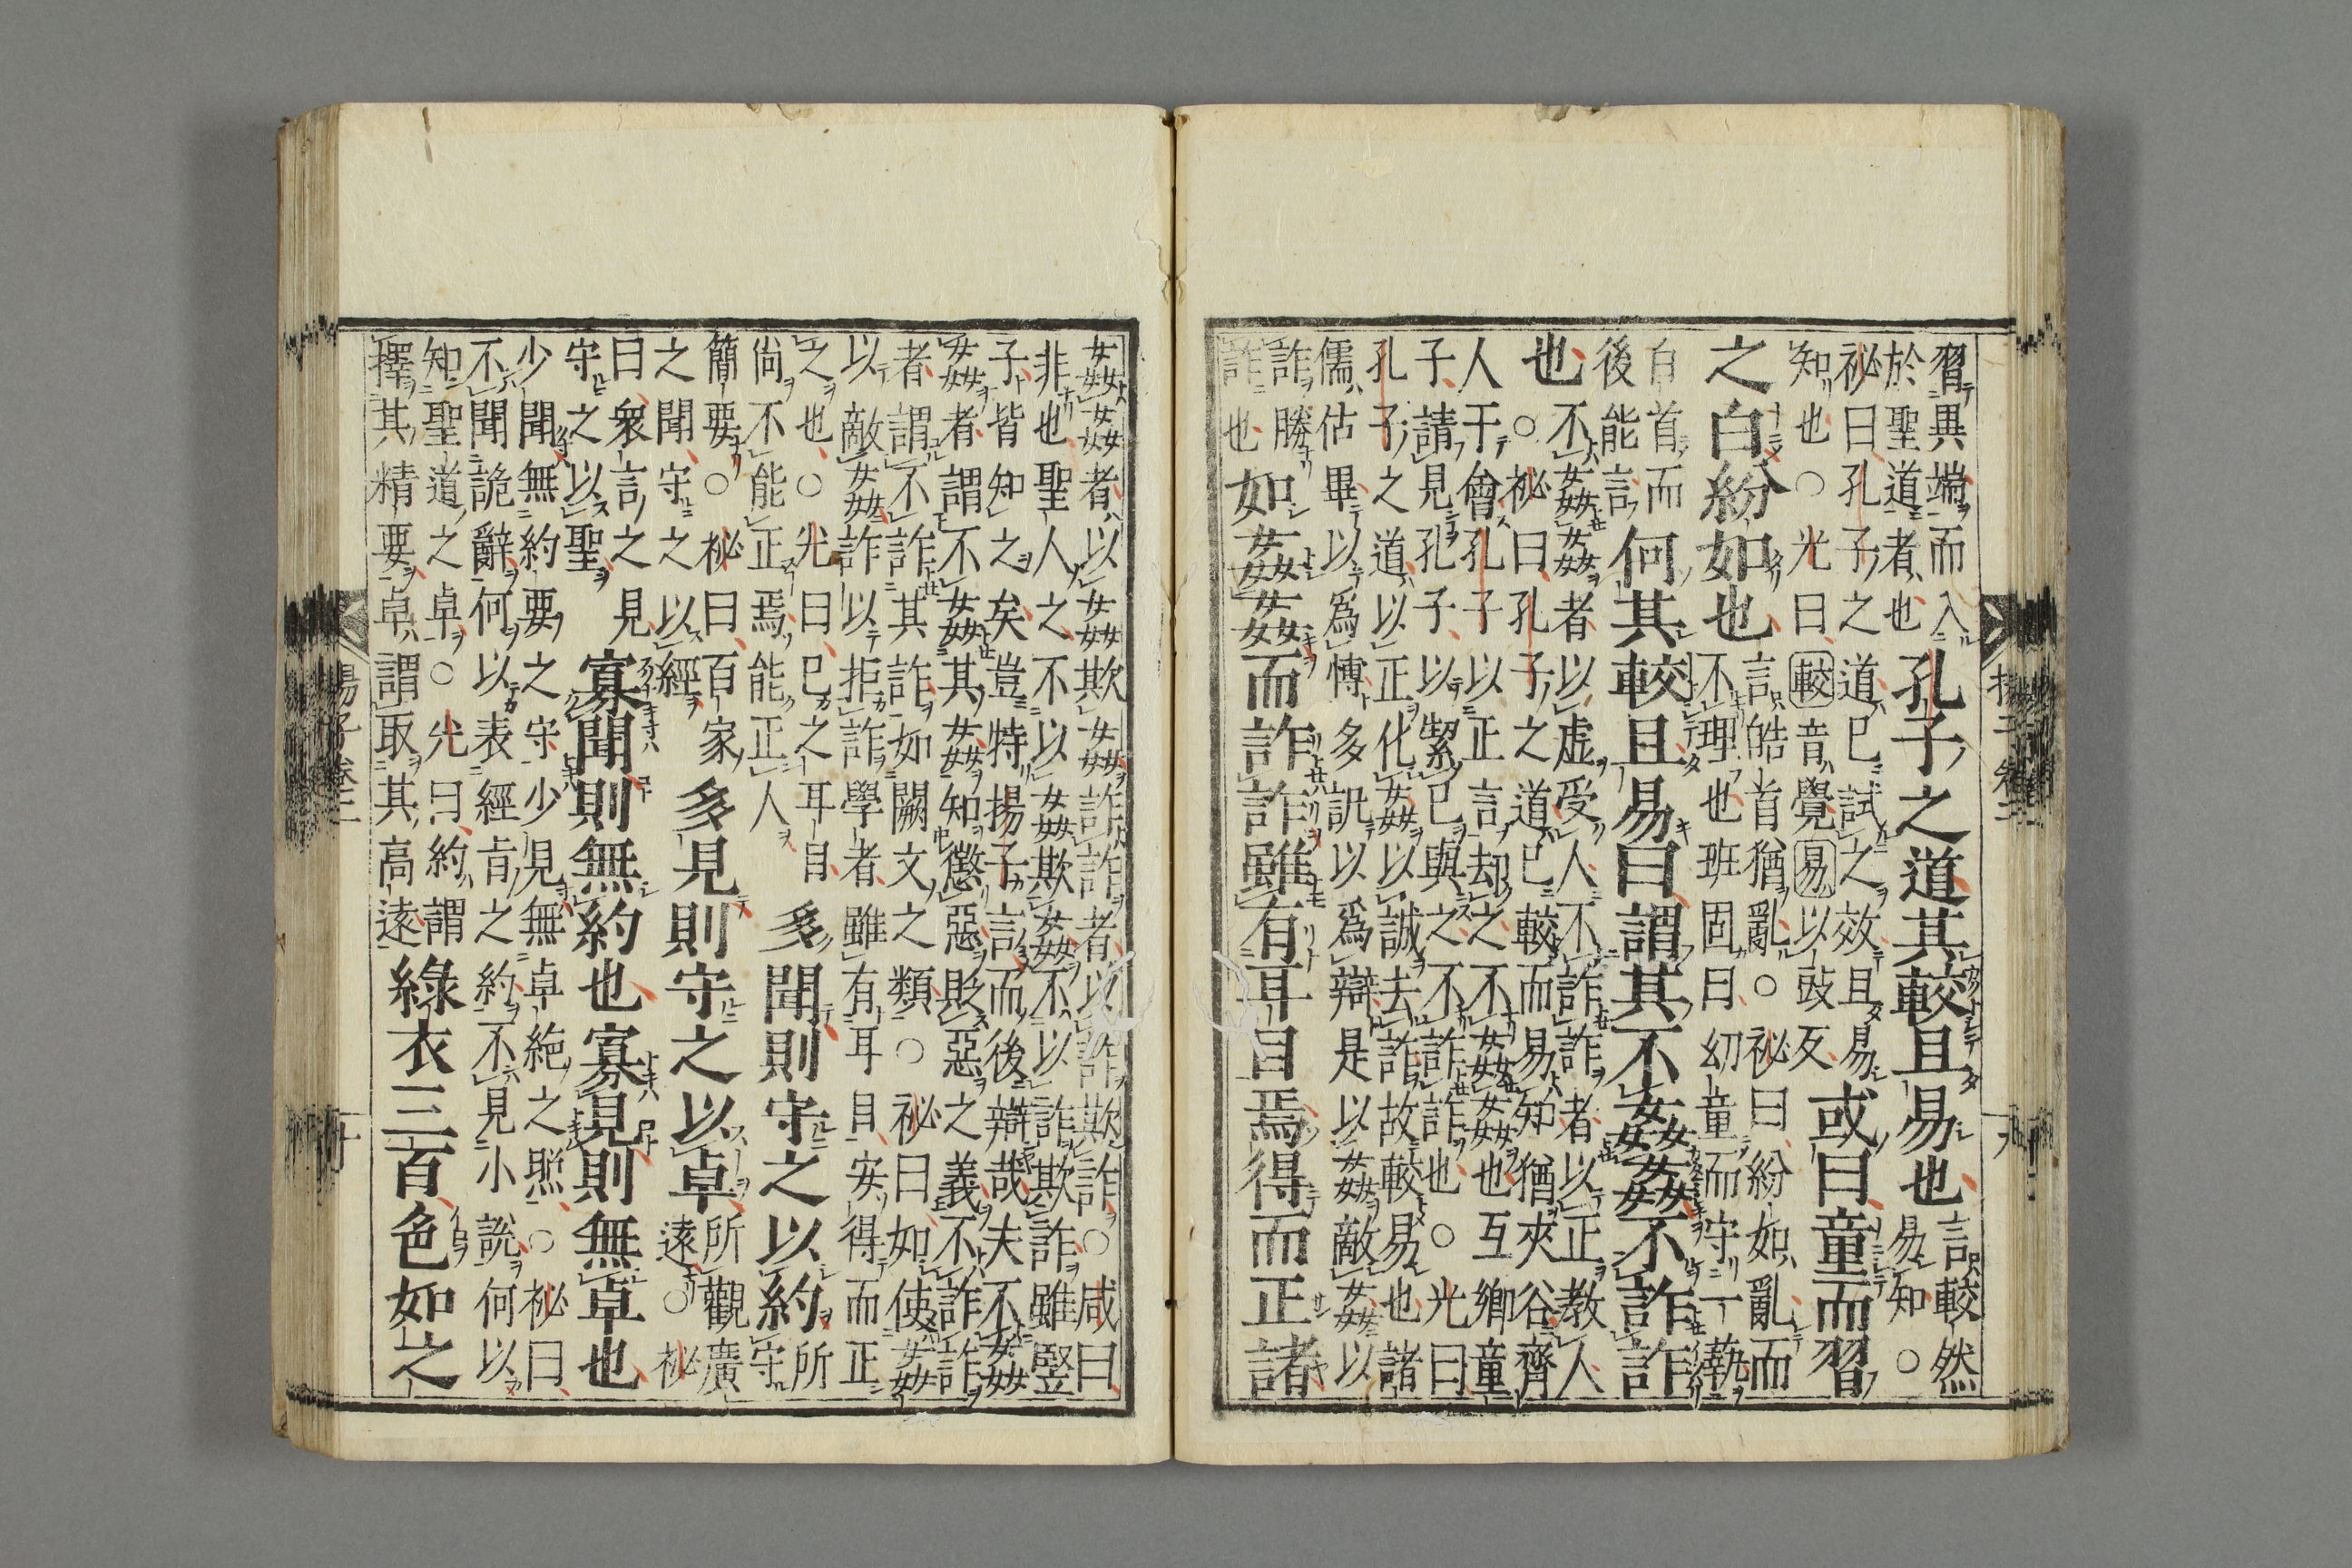 習異端而入
於聖道者也
孔子之道其較且易也
言較然
易知○
祕曰孔子之道已試之效且易
知也○光曰較音覺易以豉反
或曰童而習
之白紛如也
言皓首猶亂○祕曰紛如亂而
不理也班固曰幼童而守一藝
白首而
後能言
何其較且易曰謂其不姦姦不詐詐
也
不姦姦者以虛受人不詐詐者以正教人
○祕曰孔子之道已較而易知猶夾谷齊
人干會孔子以正言却之不姦姦也互鄉童
子請見孔子以絜已與之不詐詐也○光曰
孔子之道以正化姦以誠去詐故較易也諸
儒佔畢以爲慱多訊以爲辯是以姦敵姦以
詐勝
詐也
如姦姦而詐詐雖有耳目焉得而正諸
姦姦者以姦欺姦詐詐者以詐欺詐○咸曰
非也聖人之不以姦欺姦不以詐欺詐雖竪
子皆知之矣豈特揚子言而後辯哉夫不姦
姦者謂不姦其姦知懲惡貶惡之義不詐詐
者謂不詐其詐如闕文之類○祕曰如使姦
以敵姦詐以拒詐學者雖有耳目安得而正
之也○光曰已之耳目
尚不能正焉能正人
多聞則守之以約
所
守
簡要○祕曰百家
之聞守之以經
多見則守之以卓
所觀廣
遠○祕
曰衆言之見
守之以聖
寡聞則無約也寡見則無卓也
少聞無約要之守少見無卓絶之照○祕曰
不聞詭辭何以表經肯之約不見小說何以
知聖道之卓○光曰約謂
擇其精要卓謂取其高遠
綠衣三百色如之
揚子卷二
十